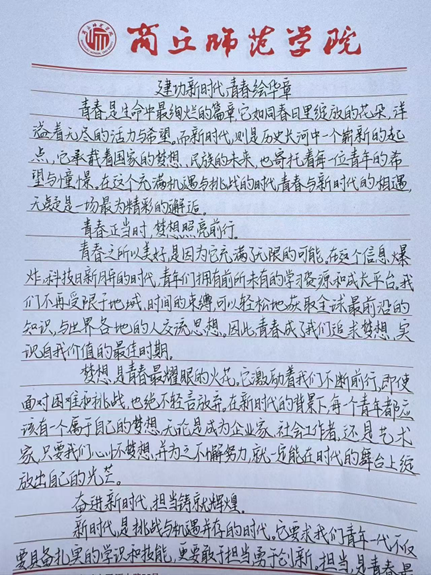 商丘师范学院
建功新时代,青春绘华章
青春是生命中最绚烂的篇章它如同春日里绽放的花朵,洋
溢着无尽的活力与希望。而新时代,则是历史长河中一个崭新的起
点,它承载着国家的梦想、民族的未来,也寄托着每一位青年的希
望与憧憬。在这个充满机遇与挑战的时代青春与新时代的相遇,
无疑是一场最为精彩的邂逅。
青春正当时,梦想照亮前行。
青春之所以美好,是因为它充满了无限的可能。在这个信息爆
炸、科技日新月异的时代,青年们拥有前所未有的学习资源和成长平台。我
们不再受限于地域、时间的束缚可以轻松地获取全球最前沿的
知识,与世界各地的人交流思想。因此青春成了我们追求梦想、实
识自我价值的最佳时期。
梦想是青春最耀眼的火花,它激励着我们不断前行,即使
面对困难和挑战,也绝不轻言放弃。在新时代的背景下,每个青年都应
该有一个属于自己的梦想,无论是成为企业家、社会工作者,还是艺术
家,只要我们心怀梦想,并为之不懈努力,就一定能在时代的舞台上绽
放出自己的光芒。
奋进新时代,担当铸就辉煌。
新时代,是挑战与机遇并存的时代。它要求我们青年一代不仅
要具备扎实的学识和技能,更要敢于担当勇于创新。担当,是青春最